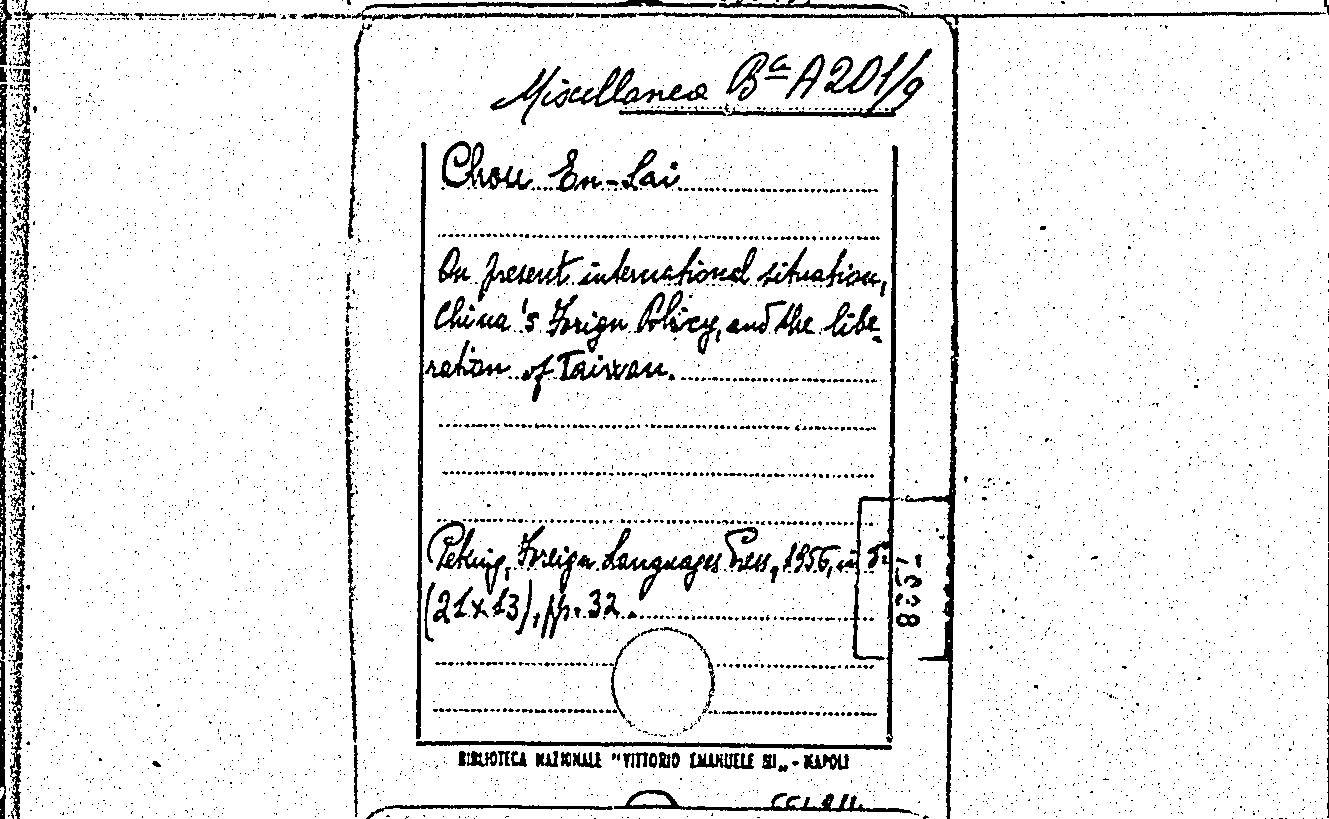 Miscellanea Bᵃ A 201/9
Chou En-Lai
On present international situation,
China's Forign Policy, and the libe-
ration of Taiwan.
Peking, Foreign Languages Press, 1956, in 8º
(21x13), pp. 32.
BIBLIOTECA NAZIONALE "VITTORIO EMANUELE III„ - NAPOLI